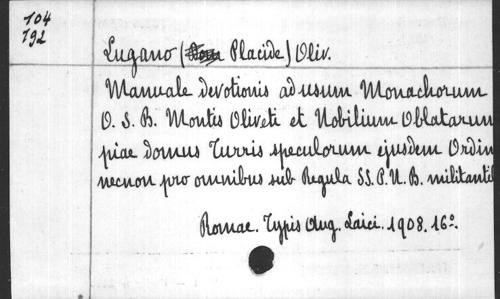 104
792
Lugano (Placide) Oliv.
Manuale devotionis ad usum Monachorum
O. S. B. Montis Oliveti et Nobilium Oblatarum
piae domus Turris speculorum ejusdem Ordin
necnon pro omnibus sub Regula SS. P. N. B. militantib
Romae. Typis Aug. Laici. 1908. 16º.